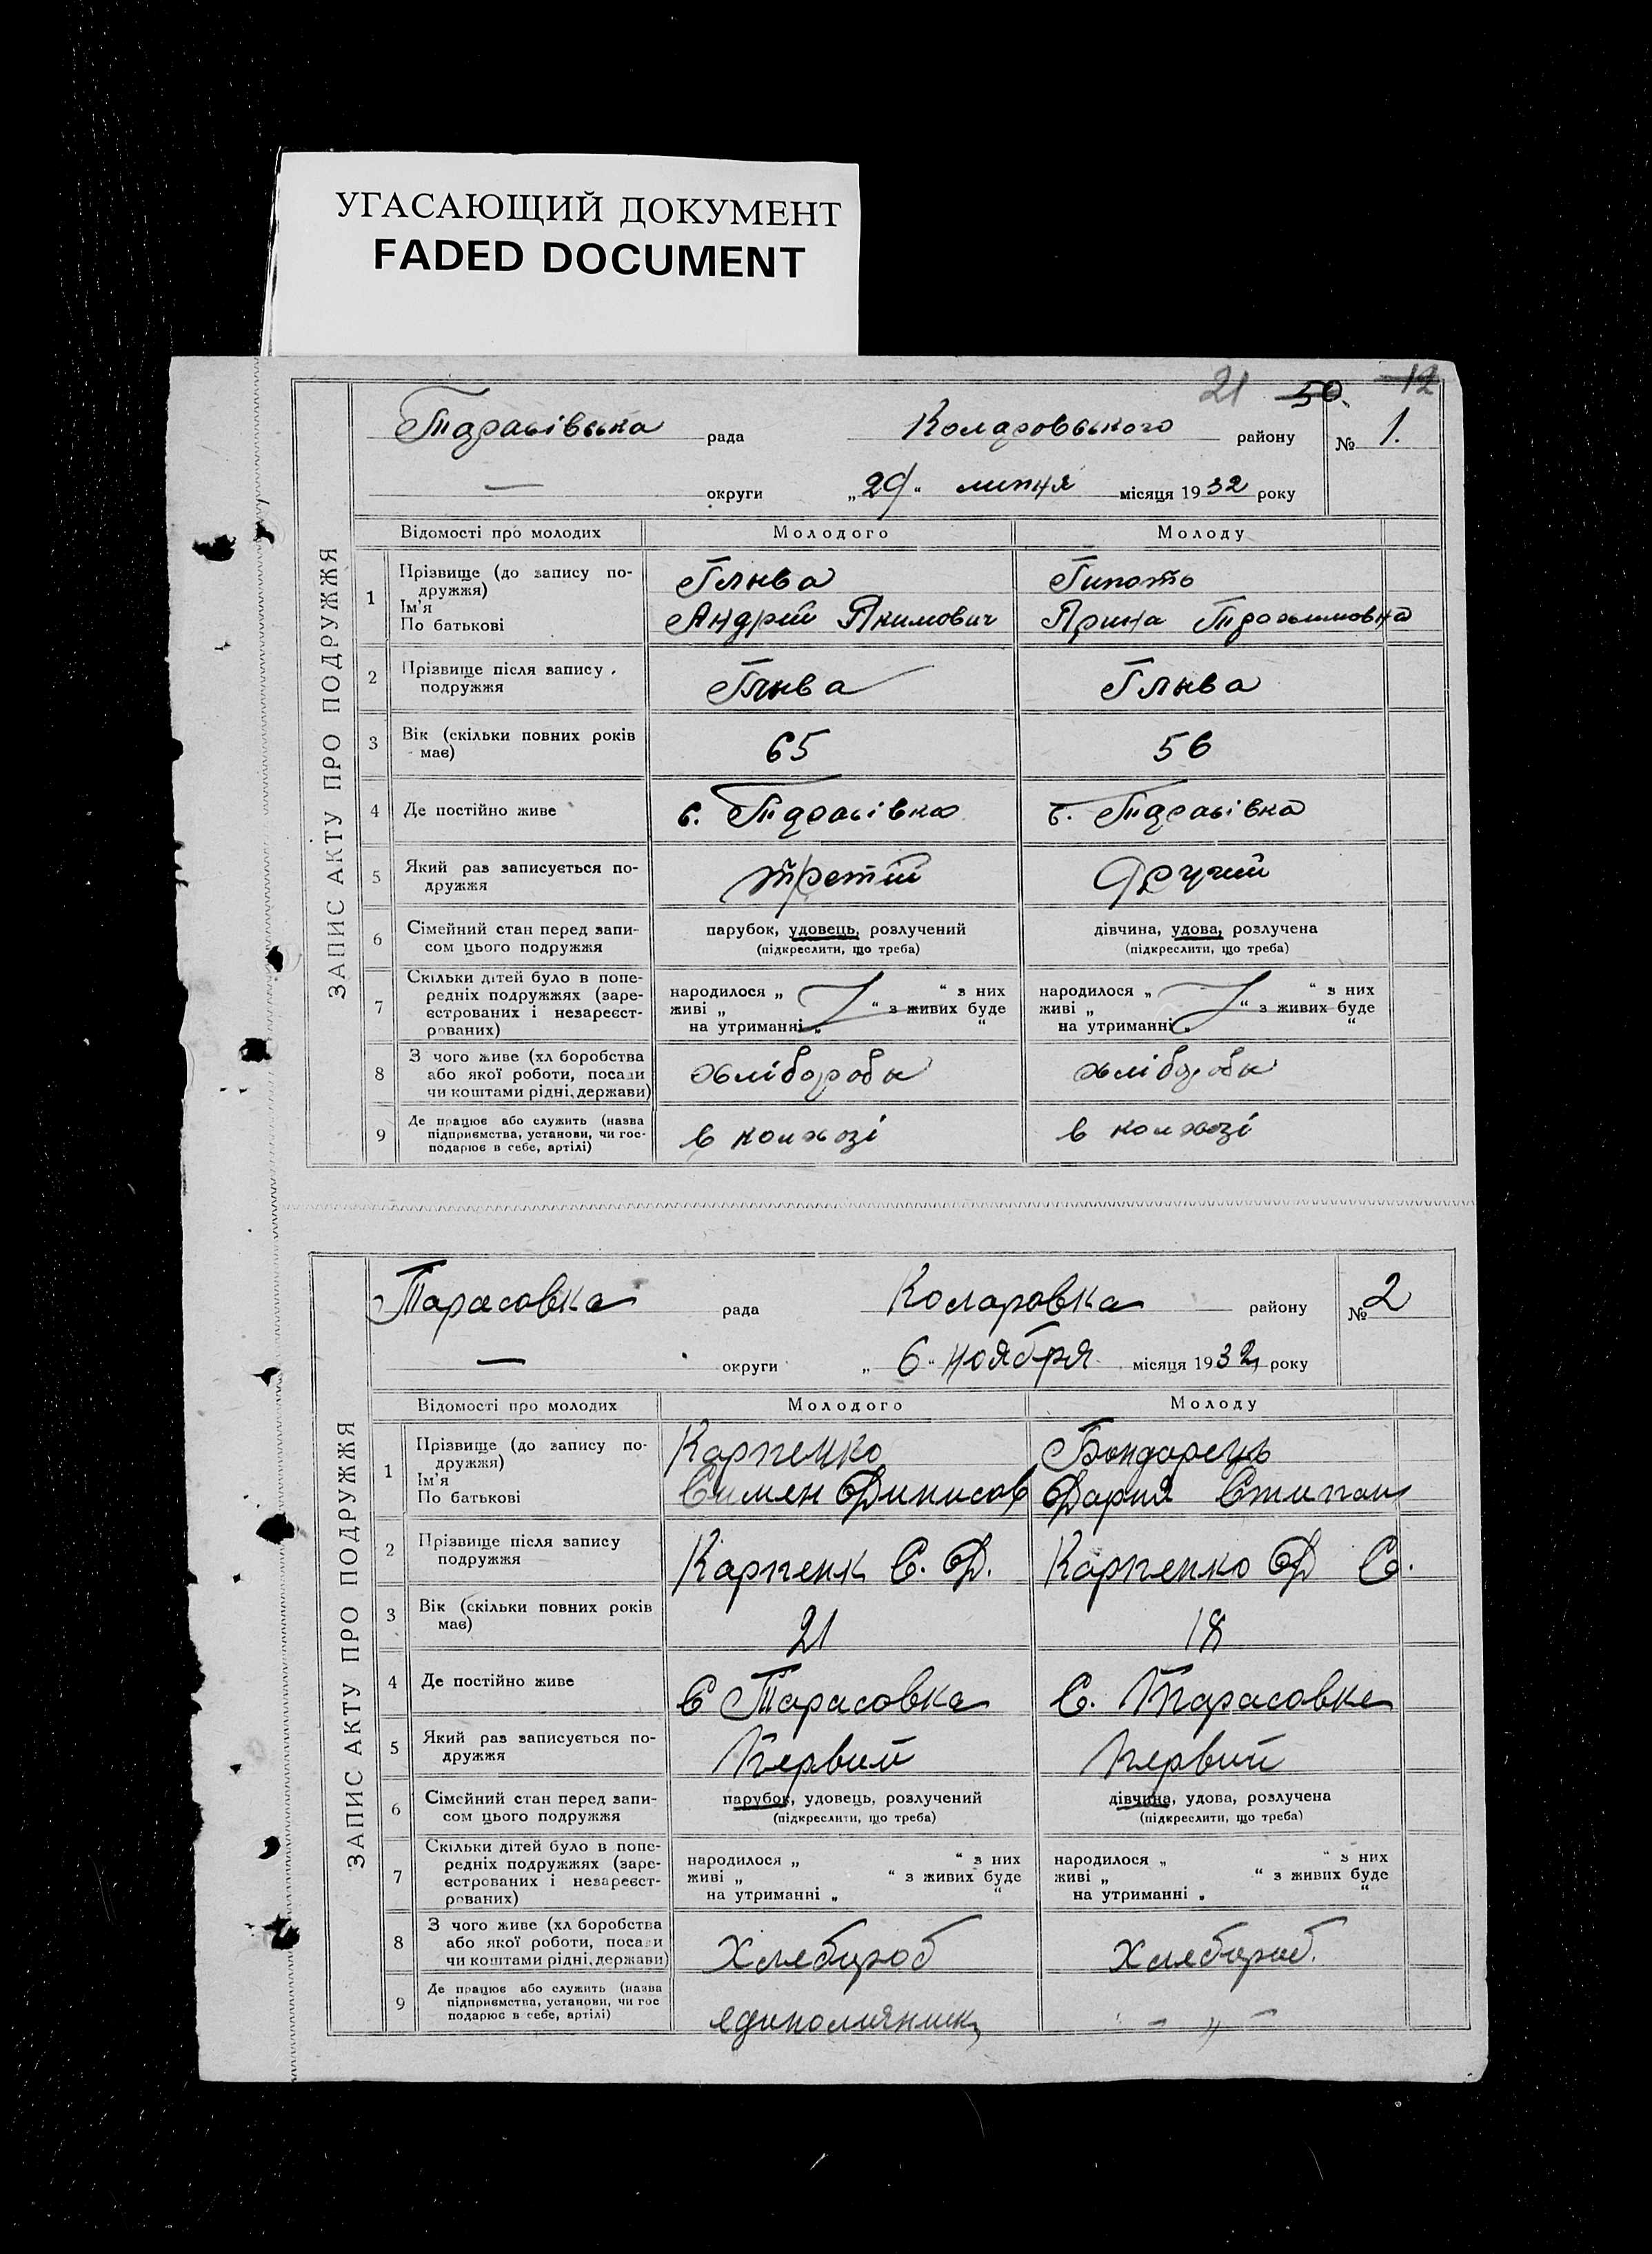 УГАСАЮЩИЙ ДОКУМЕНТ
FADED DOCUMENT
21 50. 12
ЗАПИС АКТУ ПРО ПОДРУЖЖЯ
Тарасівська рада Коларовського району № 1.
— округи „29“ липня місяця 1932 року
Відомості про молодих Молодого Молоду
1 Прізвище (до запису по-
дружжя)
Ім'я
По батькові
Глива
Андрій Якимович
Арина
2 Прізвище після запису
подружжя
Глива Глива
3 Вік (скільки повних років
має)
65 56
4 Де постійно живе с. Тарасівка с. Тарасівка
5 Який раз записується по-
дружжя
третій Другий
6 Сімейний стан перед запи-
сом цього подружжя
парубок, удовець, розлучений дівчина, удова, розлучена
(підкреслити, що треба) (підкреслити, що треба)
7 Скільки дітей було в попе-
редніх подружжях (заре-
єстрованих і незареєст-
рованих)
народилося „ “ з них народилося „ “ з них
живі „ “ з живих буде живі „ “ з живих буде
на утриманні „ “ на утриманні „ “
8 З чого живе (хл боробства
або якої роботи, посади
чи коштами рідні, держави)
хлібороби хлібороби
9 Де працює або служить (назва
підприємства, установи, чи гос-
подарює в себе, артілі)
в колхозі в колхозі
ЗАПИС АКТУ ПРО ПОДРУЖЖЯ
Тарасовка рада Коларовка району № 2
— округи „6“ ноября місяця 1932 року
Відомості про молодих Молодого Молоду
1 Прізвище (до запису по-
дружжя)
Ім'я
По батькові
Карпенко Бондарець
Симен Динисов Дария Стипан
2 Прізвище після запису
подружжя
Карпенк С. Д. Карпенко Д С.
3 Вік (скільки повних років
має)
21 18
4 Де постійно живе С Тарасовка С. Тарасовка
5 Який раз записується по-
дружжя
Первий Первий
6 Сімейний стан перед запи-
сом цього подружжя
парубок, удовець, розлучений дівчина, удова, розлучена
(підкреслити, що треба) (підкреслити, що треба)
7 Скільки дітей було в попе-
редніх подружжях (заре-
єстрованих і незареєст-
рованих)
народилося „ “ з них народилося „ “ з них
живі „ “ з живих буде живі „ “ з живих буде
на утриманні „ “ на утриманні „ “
8 З чого живе (хл боробства
або якої роботи, посади
чи коштами рідні, держави)
Хлебороб Хлебороб.
9 Де працює або служить (назва
підприємства, установи, чи гос
подарює в себе, артілі)
- „ -